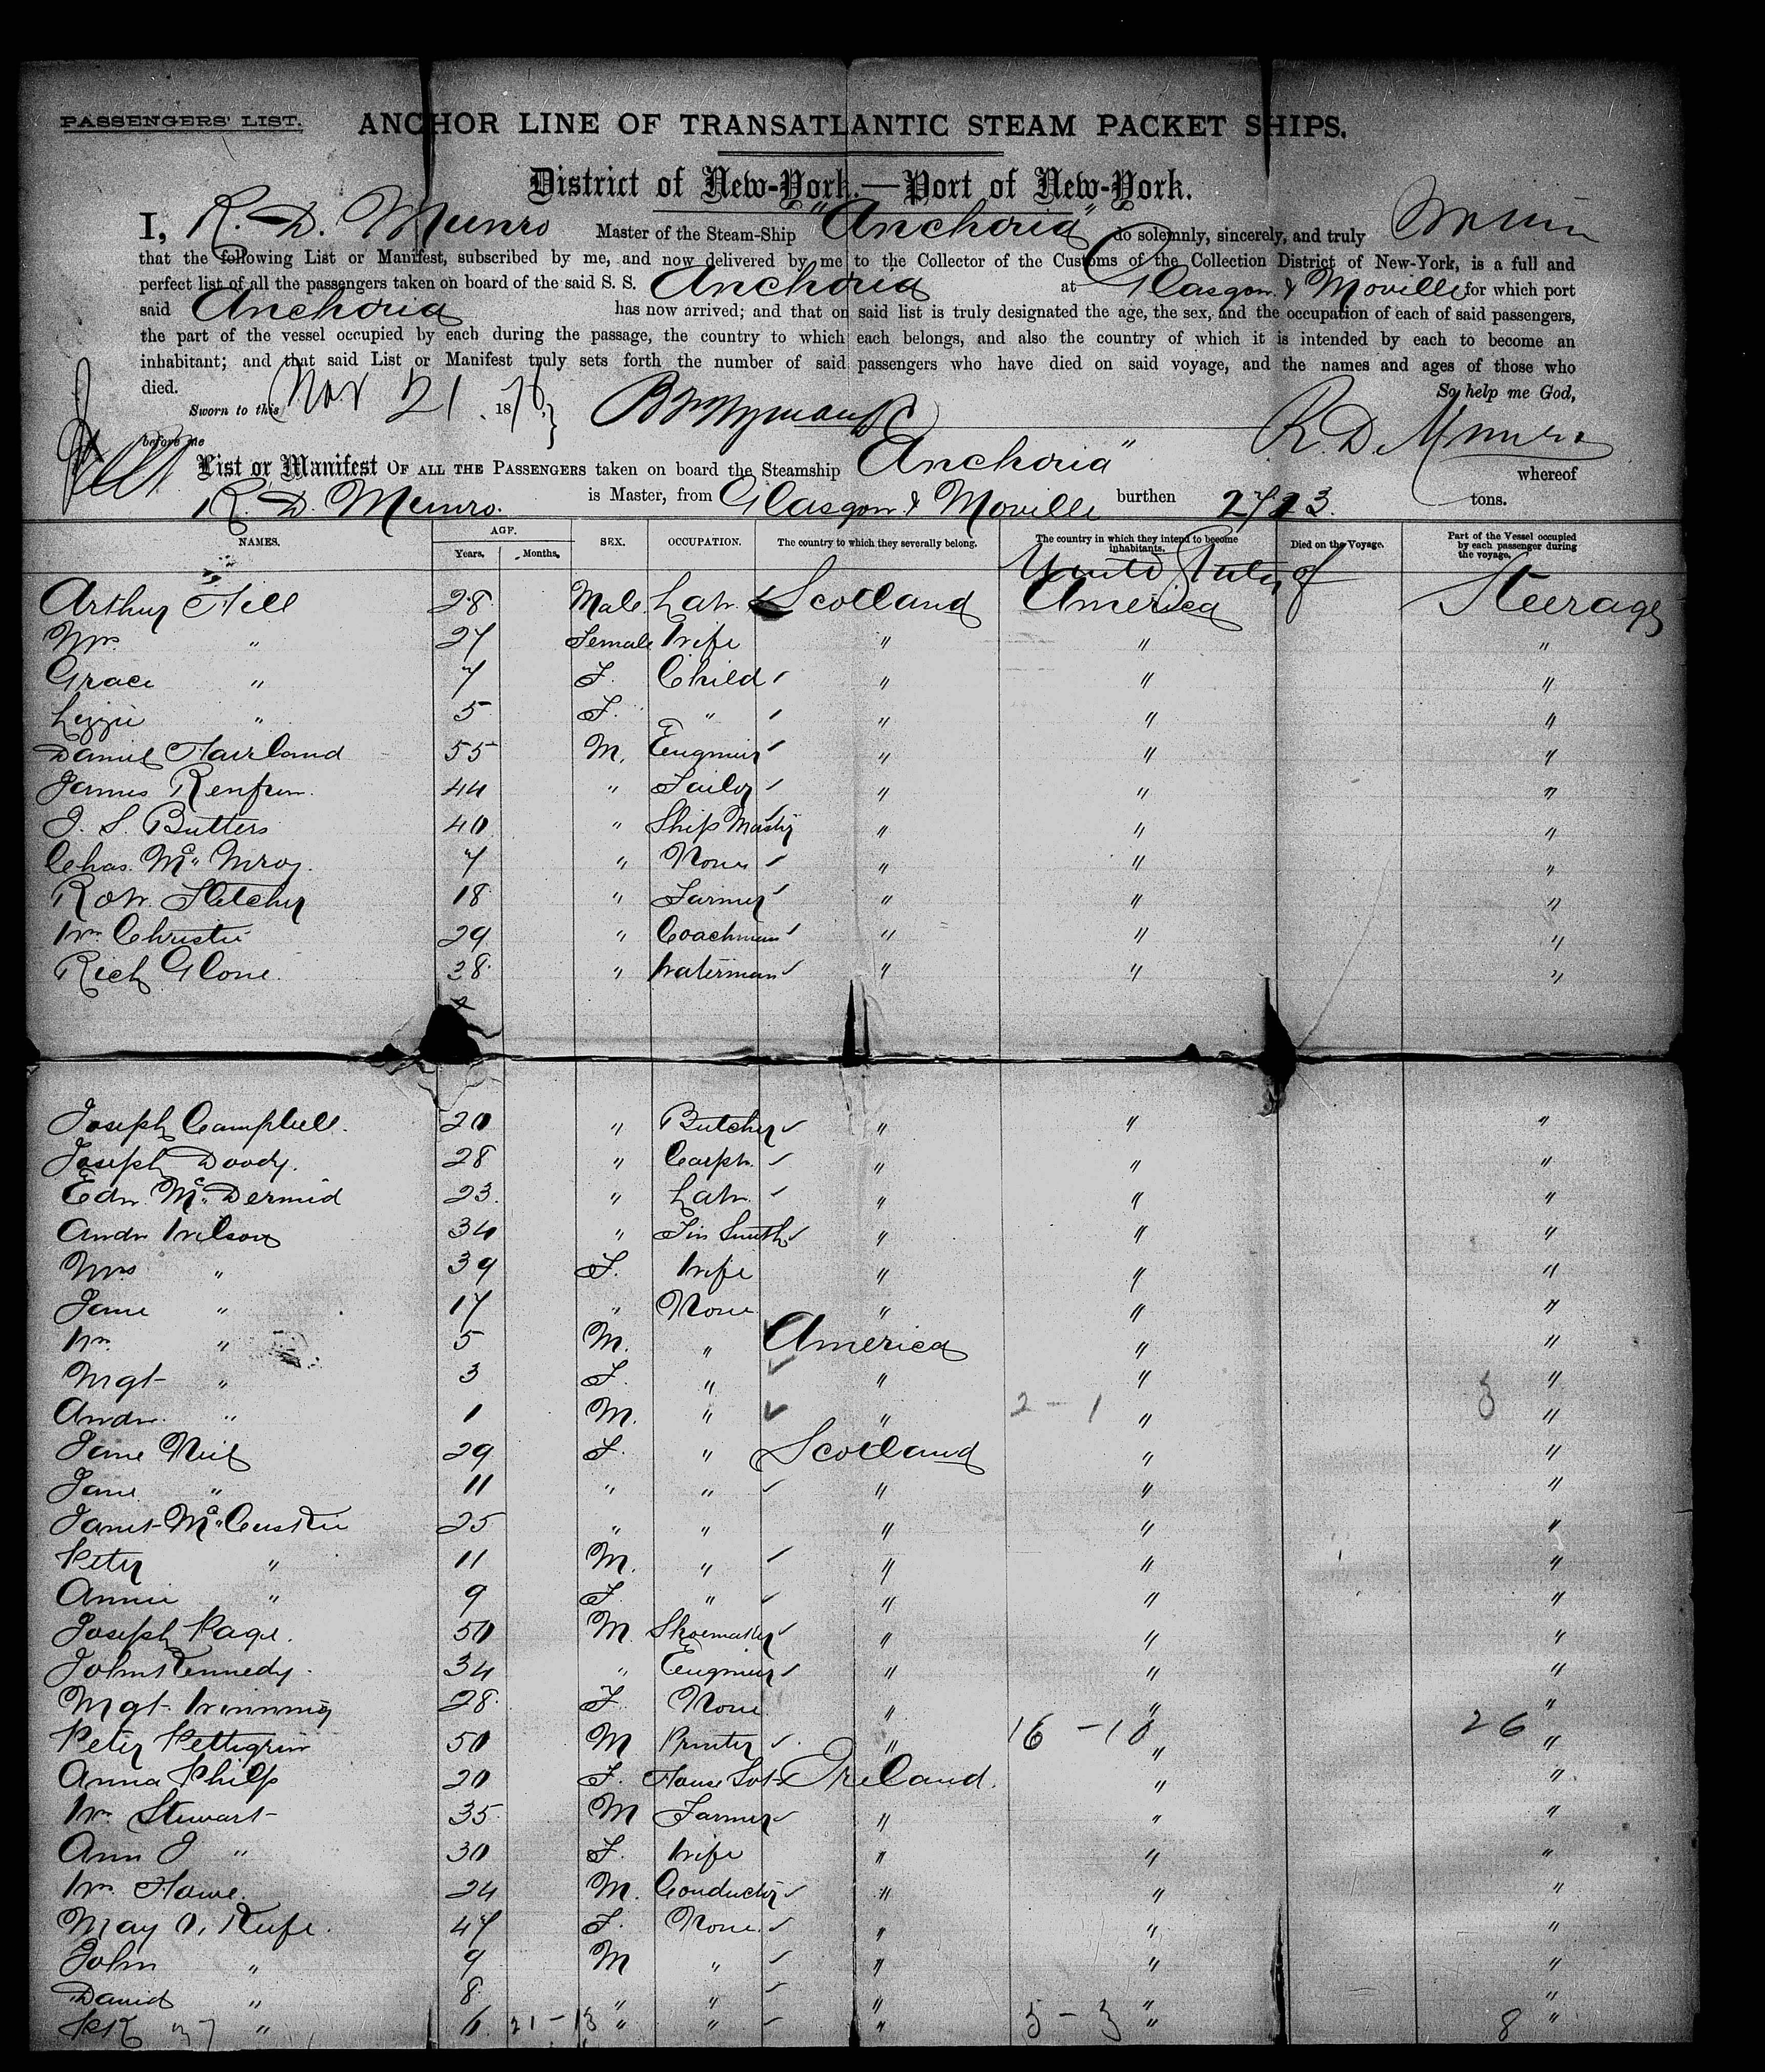 PASSENGERS' LIST.
ANCHOR LINE OF TRANSATLANTIC STEAM PACKET SHIPS.
District of New-York.—Port of New-York.
I, R. D. Munro Master of the Steam-Ship "Anchoria" do solemnly, sincerely, and truly
that the following List or Manifest, subscribed by me, and now delivered by me to the Collector of the Customs of the Collection District of New-York, is a full and
perfect list of all the passengers taken on board of the said S. S. Anchoria at Glasgow & Moville for which port
said Anchoria has now arrived; and that on said list is truly designated the age, the sex, and the occupation of each of said passengers,
the part of the vessel occupied by each during the passage, the country to which each belongs, and also the country of which it is intended by each to become an
inhabitant; and that said List or Manifest truly sets forth the number of said passengers who have died on said voyage, and the names and ages of those who
died. So help me God,
Sworn to this Nov 21 1876
before me R. D. Munro
List or Manifest OF ALL THE PASSENGERS taken on board the Steamship Anchoria" whereof
R. D. Munro. is Master, from Glasgow & Moville burthen 2713. tons.
NAMES. AGE. Years. Months. SEX. OCCUPATION. The country to which they severally belong. The country in which they intend to become inhabitants. Died on the Voyage. Part of the Vessel occupied by each passenger during the voyage.
United States of
Arthur Hill 28 Male Labr. Scotland America Steerage
Mrs " 27 Female Wife " " "
Grace " 7 F. Child " " "
Lizzie " 5 F. " " " "
Daniel Fairland 55 M. Engineer " " "
James Renfrew. 44 " Tailor " " "
J. S. Butters 40 " Ship Master " " "
Chas. Mc 7 " None " " "
Robt. Fletcher 18 " Farmer " " "
Wm Christie 29 " Coachman " " "
Rich 38 " Waterman " " "
Joseph Campbell. 20 " Butcher " " "
Joseph Doody. 28 " Carptr. " " "
Edw. McDermid 23 " Labr. " " "
Andw Wilson 34 " Tin Smith " " "
Mrs " 39 F. Wife " " "
Jane " 17 " None " " "
Wm " 5 M. " America " "
Mgt " 3 F. " " " "
Andw. " 1 M. " " 2 - 1 " 3 "
Jane Neil 29 F. " Scotland " "
Jane " 11 " " " " "
Janet McCuskie 25 " " " " "
Peter " 11 M. " " " "
Annie " 9 F. " " " "
Joseph Page. 50 M. Shoemaker " " "
John Kennedy. 34 " Engineer " " "
Mgt. Winning 28 F. None " " "
Peter Pettigrew 50 M Printer " 16 - 10 " 26 "
Anna Philp 20 F. House Svt Ireland. " "
Wm Stewart 35 M Farmer " " "
Ann J " 30 F. Wife " " "
Wm Howe. 24 M. Conductor " " "
May O'Keefe. 47 F. None. " " "
John " 9 M " " " "
David " 8 " " " " "
" 6 21 - 13 " " " 5 - 3 " 8 "